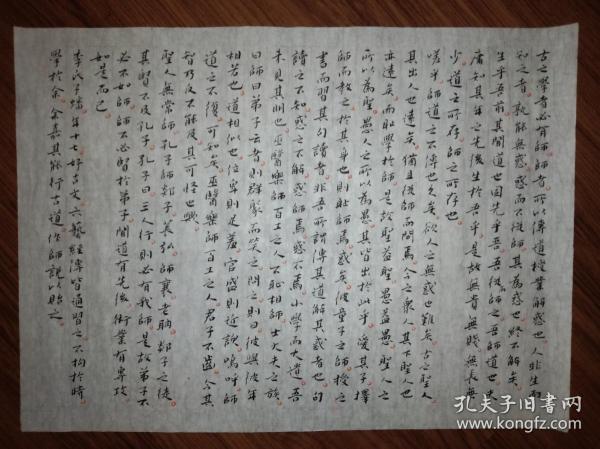 古之學者必有師師者所以傳道授業解惑也人非生而
知之者孰能無惑惑而不從師其為惑也終不解矣
生乎吾前其聞道也固先乎吾吾從師之吾師道也夫
庸知其年之先後生於吾乎是故無貴無賤無長無
少道之所存師之所存也
嗟乎師道之不傳也久矣欲人之無惑也難矣古之聖人
其出人也遠矣猶且從師而問焉今之眾人其下聖人也
亦遠矣而恥學於師是故聖益聖愚益愚聖人之
所以為聖愚人之所以為愚其皆出於此乎愛其子擇
師而教之於其身也則恥師焉惑矣彼童子之師授之
書而習其句讀者非吾所謂傳其道解其惑者也句
讀之不知惑之不解或師焉或不焉小學而大遺吾
未見其明也巫醫樂師百工之人不恥相師士大夫之族
曰師曰弟子云者則群聚而笑之問之則曰彼與彼年
相若也道相似也位卑則足羞官盛則近諛嗚呼師
道之不復可知矣巫醫樂師百工之人君子不齒今其
智乃反不能及其可怪也歟
聖人無常師孔子師郯子萇弘師襄老聃郯子之徒
其賢不及孔子孔子曰三人行則必有我師是故弟子不
必不如師師不必賢於弟子聞道有先後術業有專攻
如是而已
李氏子蟠年十七好古文六藝經傳皆通習之不拘於時
學於余余嘉其能行古道作師說以貽之
孔夫子旧书网
www.kongfz.com